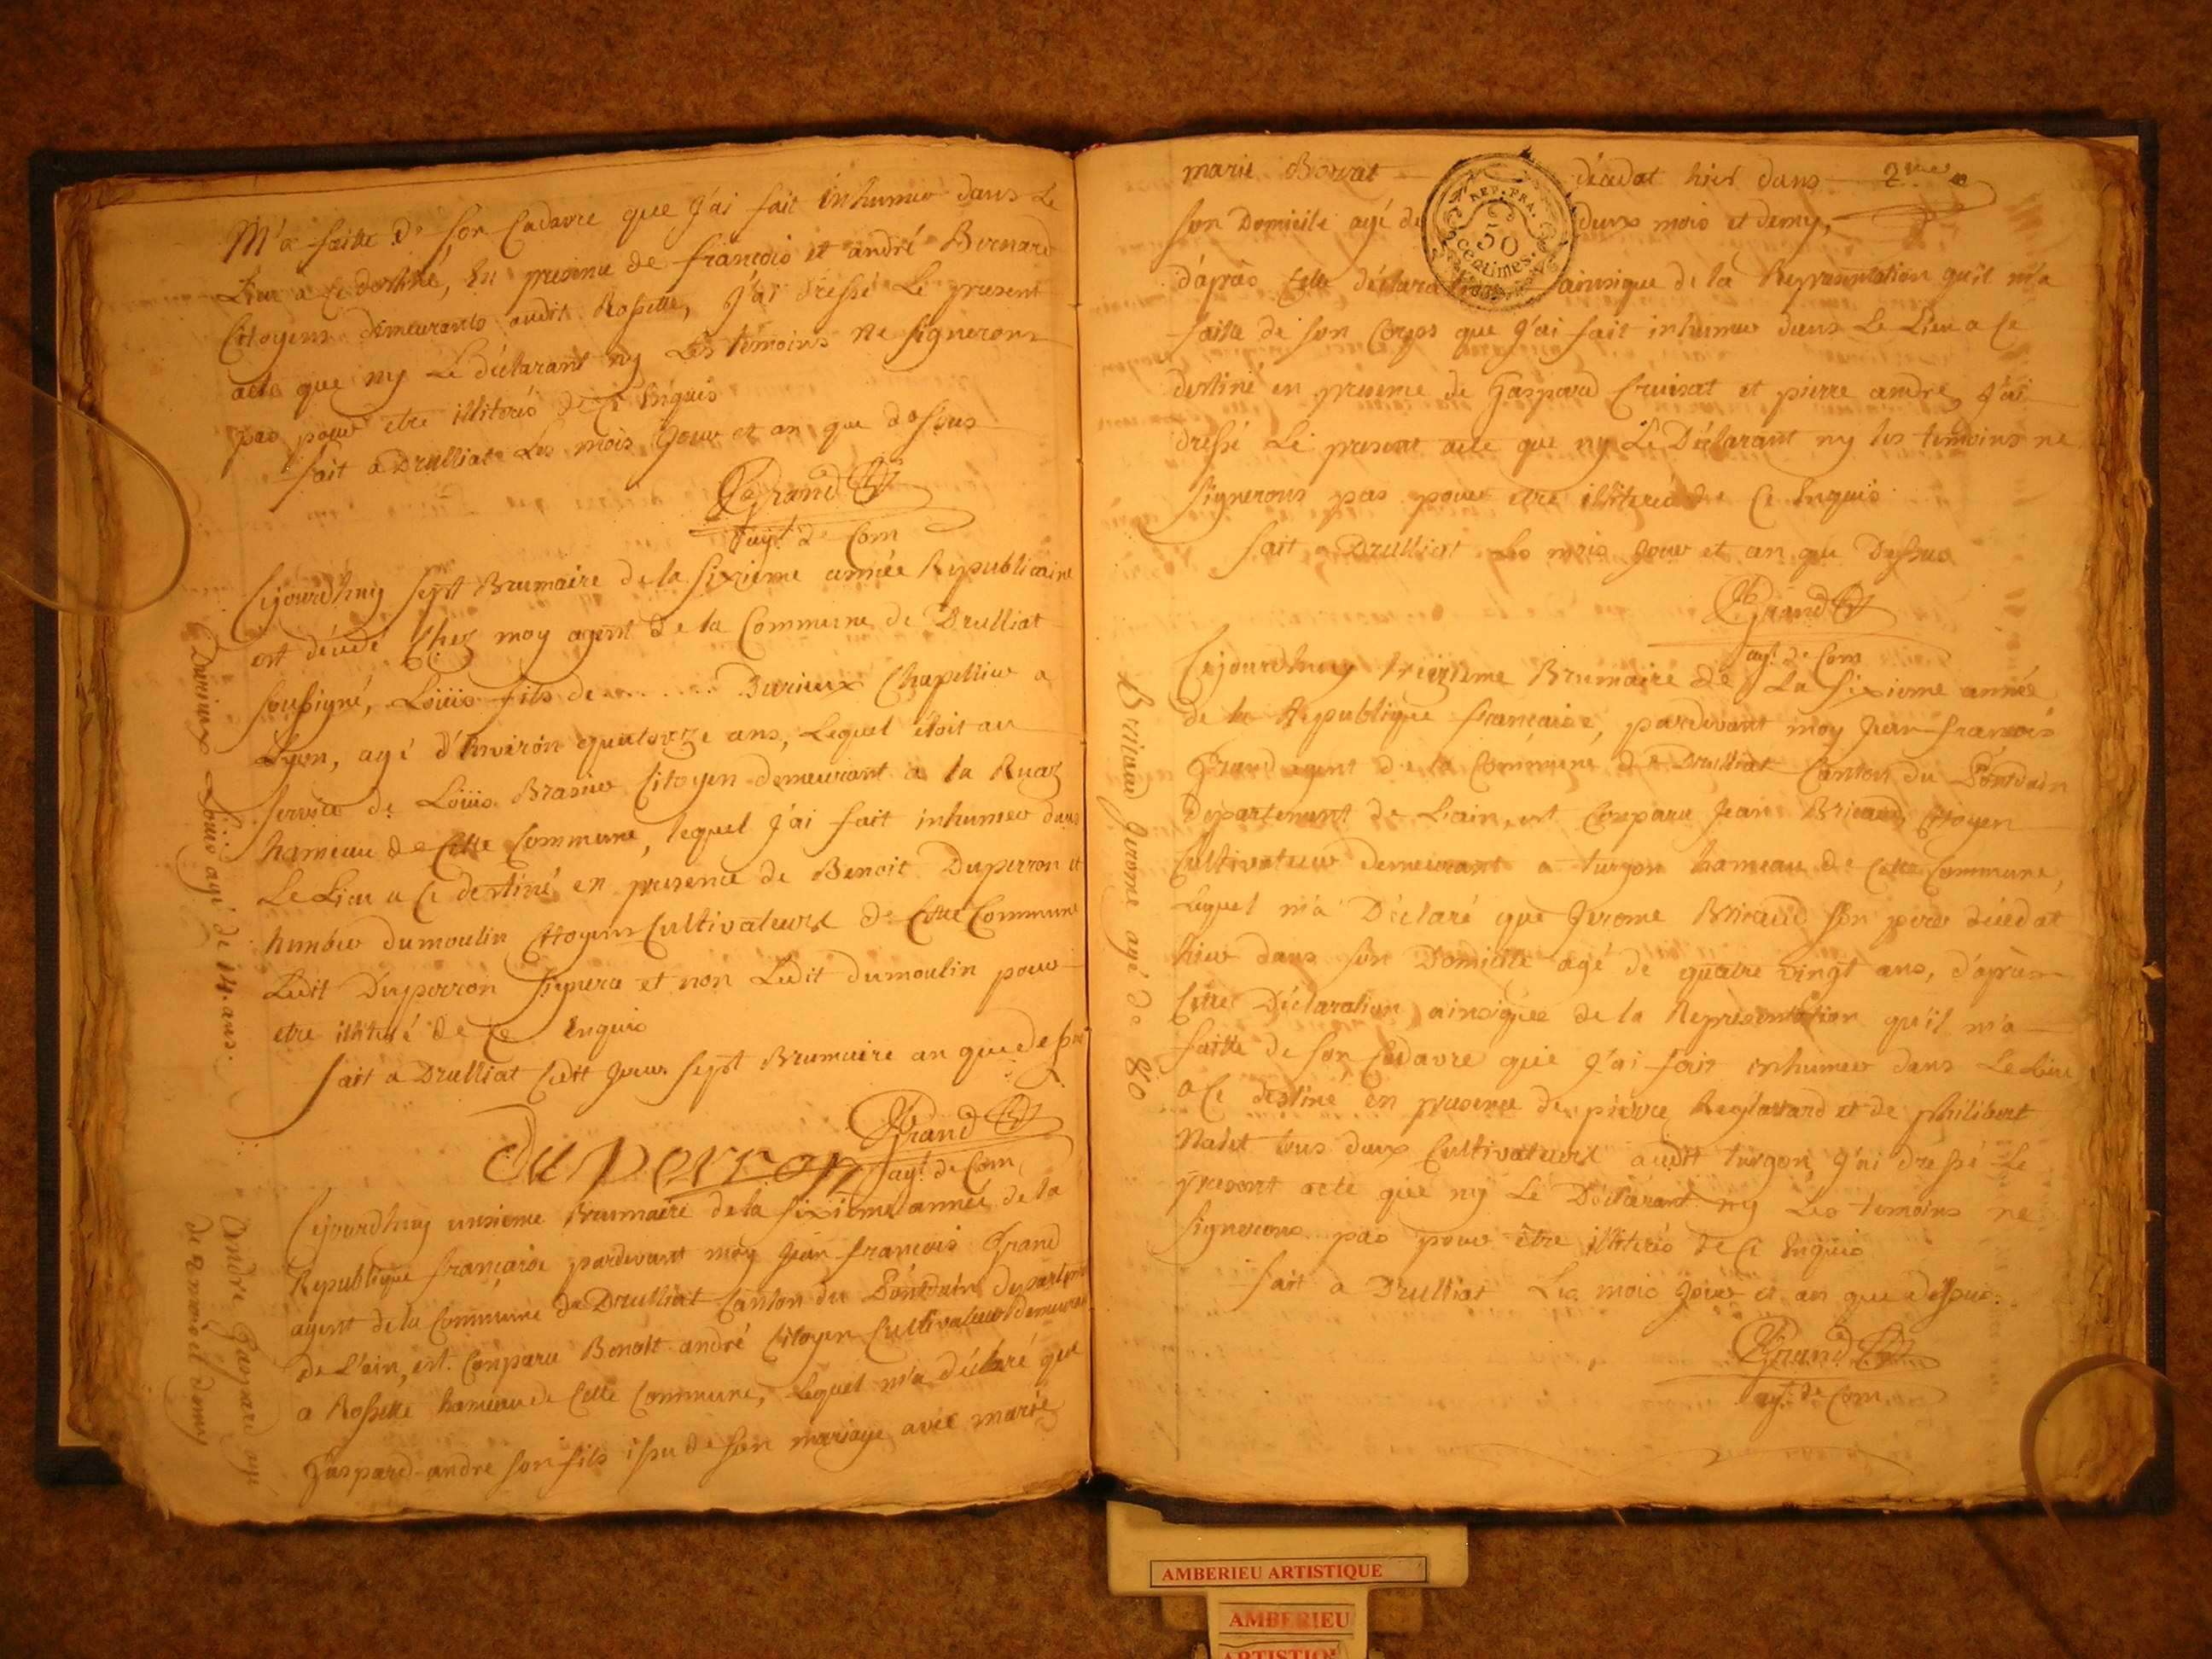 M'a faitte de son Cadavre que J'ai fait inhumer dans Le
Lieu a Ce destiné, En presence de françois et andré Bernard
Citoyens demeurants audit Rossette, J'ai dressé Le present
acte que ny Le déclarant ny Les témoins ne signerons
pas pour etre illiterés de Ce Enquis
fait a Drulliat Les mois Jour et an que dessus
Grand
agt. de Com
Cejourdhuy sept Brumaire de la sixieme année Republicaine
est décédé Chez moy agent de la Commune de Drulliat
soussigné, Loüis fils de ........ Durieux Chapellier a
Lyon, agé d'Environ quatorze ans, Lequel étoit au
service de Loüis Brasier Citoyen demeurant a la Ruaz
hameau de Cette Commune, lequel J'ai fait inhumer dans
Le Lieu a Ce destiné en presence de Benoit Duperron et
humber dumoulin Citoyens Cultivateurs de Cette Commune
Ledit Duperron signera et non Ledit dumoulin pour
etre illiteré de Ce Enquis
fait a Drulliat Ledit Jour sept Brumaire an que dessus
Grand
Duperron
agt. de Com
Cejourdhuy unsieme Brumaire de la sixieme année de la
Republique francaise pardevant moy Jean francois Grand
agent de la Commune de Drulliat Canton du Pontdain Departement
de L'ain, est Comparu Benoit andré Citoyen Cultivateur demeurant
a Rossette hameau de Cette Commune, Lequel m'a déclaré que
Gaspard andre son fils issu de son mariage avec marie
Durieux Loüis agé de 14. ans.
André Gaspard agé
de 2 mois et demy
marie Borrat décedat hier dans
son Domicile agé de deux mois et demy,
d'après Cette déclaration ainsique de la Representation qu'il m'a
faitte de son Corps que J'ai fait inhumer dans Le Lieu a Ce
destiné en presence de Gaspard Cruisat et pierre andre, J'ai
dressé Le present acte que ny Le Déclarant ny les temoins ne
signerons pas pour etre illiterés de Ce Enquis
fait a Drulliat Les mois Jour et an que Dessus
REP. FRA.
50
centimes.
Grand
agt. de Com
Cejourdhuy treizieme Brumaire de La sixieme année
de la Republique francaise, pardevant moy Jean francois
Grand agent de la Commune de Drulliat Canton du Pontdain
Departement de L'ain, est Comparu Jean Bricaud Citoyen
Cultivateur demeurant a turgon hameau de Cette Commune,
Lequel m'a Déclaré que Jerome Bricaud son pere décedat
hier dans son Domicile agé de quatre vingt ans, d'après
Cette Déclaration ainsique de la Representation qu'il m'a
faitte de son Cadavre que J'ai fait inhumer dans Le Lieu
a Ce destiné en presence de pierre et de philibert
Nadet tous deux Cultivateurs audit turgon, J'ai dressé Le
present acte que ny Le Déclarant ny Les temoins ne
signerons pas pour être illiterés de Ce Enquis
fait a Drulliat Les mois Jour et an que dessus.
Grand
agt. de Com
Bricaud Jerome agé de 80
AMBERIEU ARTISTIQUE
AMBERIEU
ARTISTIQ